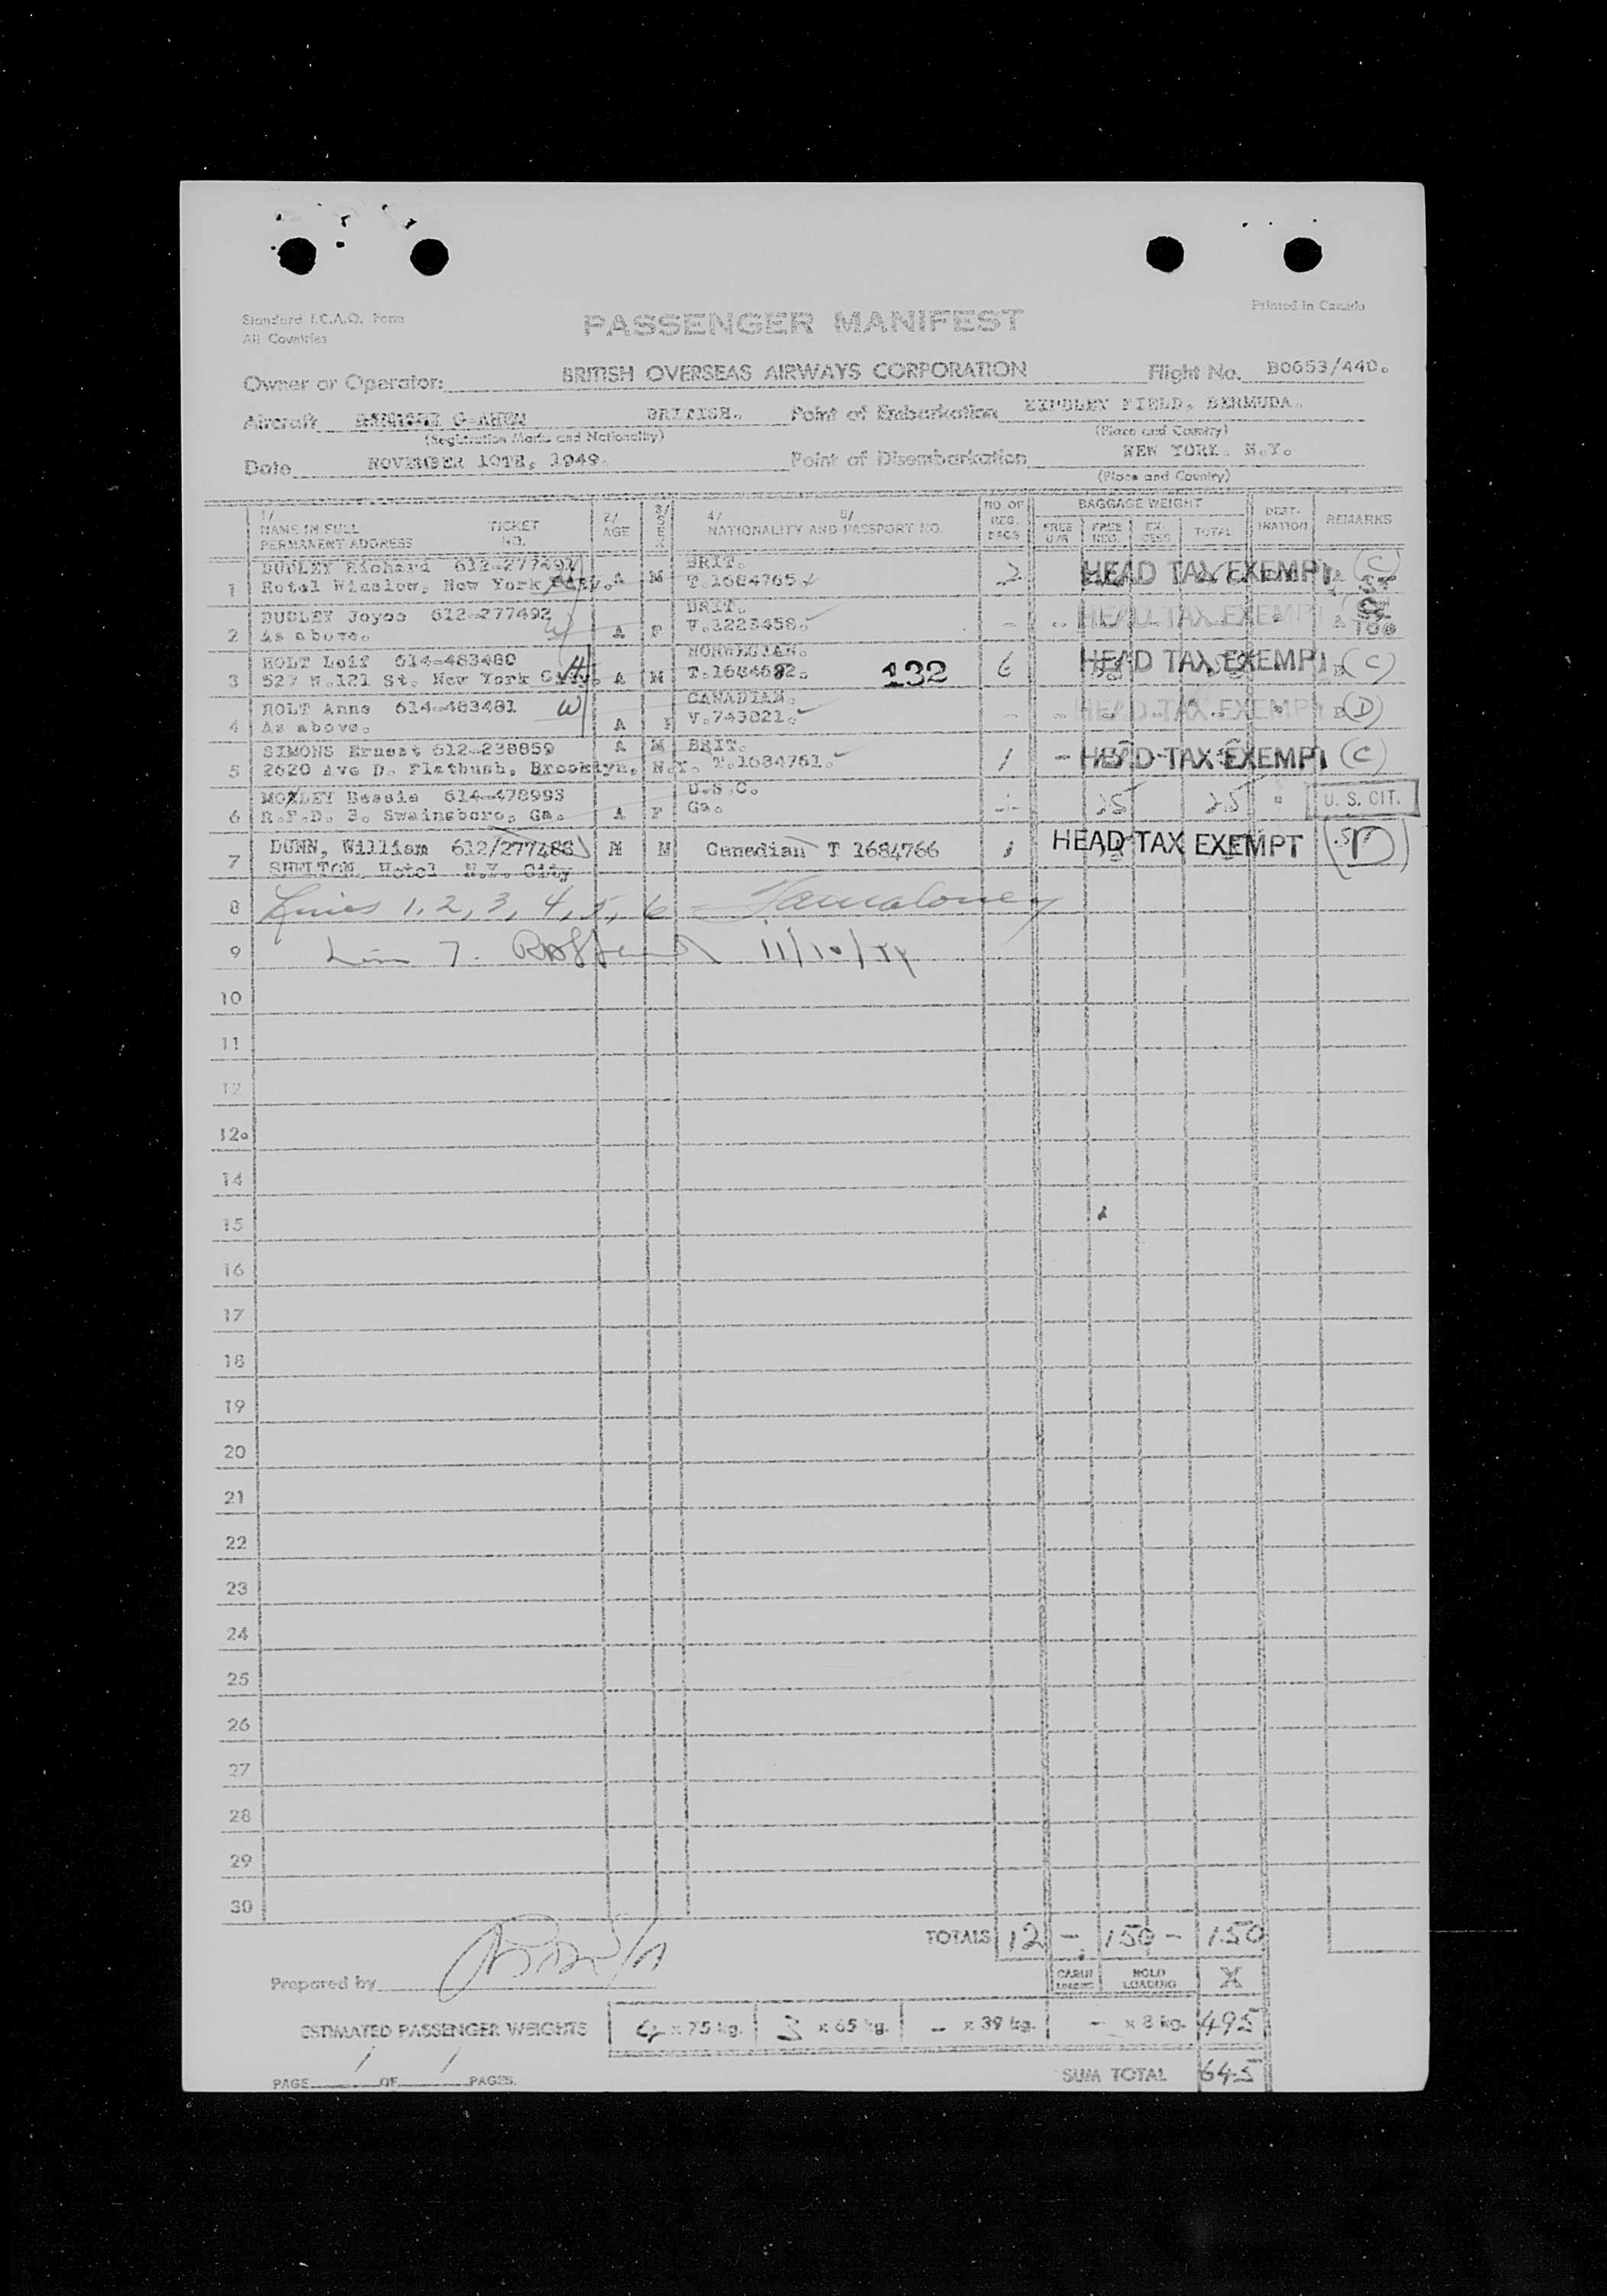 Standard I.C.A.O. Form
All Countries
PASSENGER MANIFEST
Printed in Canada
Owner or Operator: BRITISH OVERSEAS AIRWAYS CORPORATION Flight No. BO653/440.
Aircraft BRITISH. Point of Embarkation KINDLEY FIELD, BERMUDA.
(Registration Marks and Nationality) (Place and Country)
Date NOVEMBER 10TH, 1949. Point of Disembarkation NEW YORK. N.Y.
(Place and Country)
1/ NAME IN FULL PERMANENT ADDRESS TICKET NO. 2/ AGE 3/ SEX 4/ 5/ NATIONALITY AND PASSPORT NO. NO. OF REG. BAGS BAGGAGE WEIGHT FREE U/R FREE REG. EX-CESS TOTAL DEST-INATION REMARKS
DUDLEY Richard BRIT.
1 Hotel Winslow, New York City. A M T.1684765. 2 HEAD TAX EXEMPT C
DUDLEY Joyce 612-277492 BRIT.
2 As above. W A F V.1223458. - - HEAD TAX EXEMPT
HOLT Leif 614-483480 NORWEGIAN.
3 527 W.121 St. New York City. H A M T.1684692. 132 6 HEAD TAX EXEMPT C
HOLT Anne 614-483481 W CANADIAN.
4 As above. A F V.743821. - - HEAD TAX EXEMPT D
SIMONS Ernest 612-238859 A M BRIT.
5 2620 Ave D. Flatbush, Brooklyn, N.Y. T.1684761. 1 - HEAD TAX EXEMPT C
MOXLEY Bessie 614-478993 U.S.C.
6 R.F.D. 3. Swainsboro, Ga. A F Ga. 25 25 " U. S. CIT.
DUNN, William M Canadian T 1684766 1 HEAD TAX EXEMPT D
7 SHELTON Hotel N.Y. City
8 Lines 1, 2, 3, 4, 5, 6
9 Line 7.
10
11
12
12a
14
15
16
17
18
19
20
21
22
23
24
25
26
27
28
29
30
TOTALS 12 - 150 - 150
Prepared by
CABIN LOADING HOLD LOADING X
ESTIMATED PASSENGER WEIGHTS 4 x 75 kg. 3 x 65 kg. - x 39 kg. - x 8 kg. 495
PAGE 1 OF 1 PAGES. SUM TOTAL 645